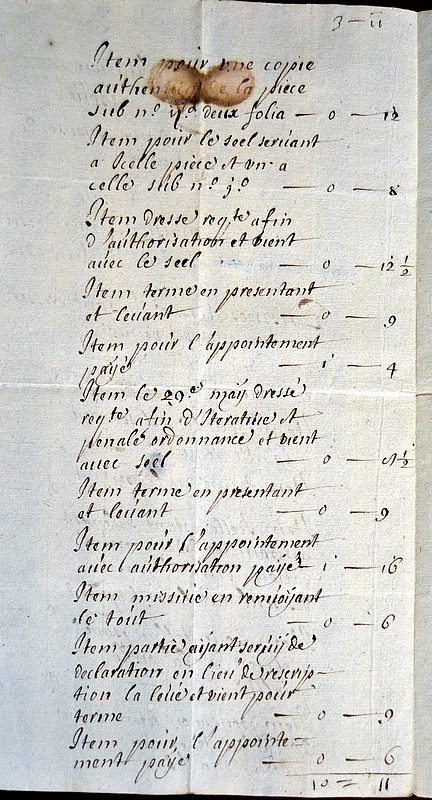 3 — 11
Item pour une copie
authentiq de la piece
sub n.º ij.º deux folia — 0 — 12
Item pour le seel seruant
a Icelle piece et vn a
celle sub n.º j.º — 0 — 8
Item dresse reqte afin
d'authorisation et vient
auec le seel — 0 — 12 ½
Item terme en presentant
et leuant — 0 — 9
Item pour l'appointement
payé — 1 — 4
Item le 29e may dressé
reqte afin d'Iteratiue et
penale ordonnance et vient
auec seel — 0 —
Item terme en presentant
et leuant — 0 — 9
Item pour l'appointement
auec authorisation payé — 1 — 16
Item missiue en renuoyant
le tout — 0 — 6
Item partie aijant seruij de
declaration en lieu de rescrip-
tion la leué et vient pour
terme — 0 — 9
Item pour l'appointe-
ment payé — 0 — 6
10 = 11